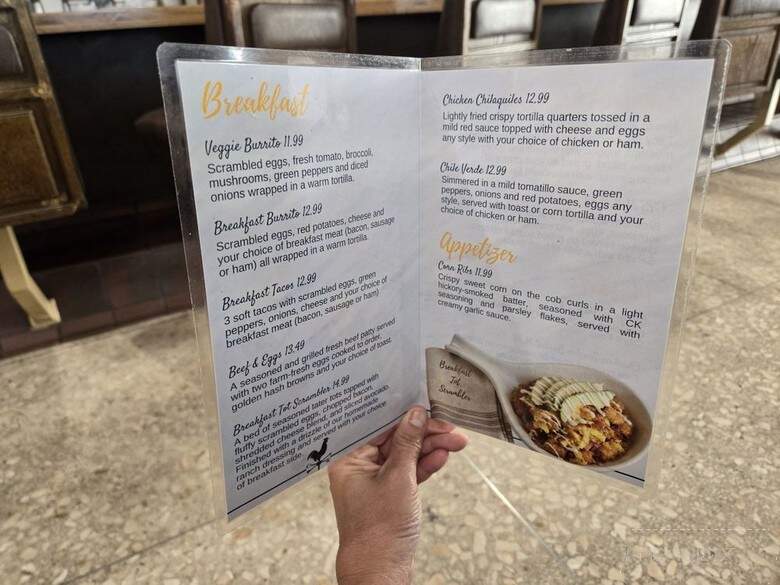 Breakfast
Veggie Burrito 11.99
Scrambled eggs, fresh tomato, broccoli,
mushrooms, green peppers and diced
onions wrapped in a warm tortilla.
Breakfast Burrito 12.99
Scrambled eggs, red potatoes, cheese and
your choice of breakfast meat (bacon, sausage
or ham) all wrapped in a warm tortilla.
Breakfast Tacos 12.99
3 soft tacos with scrambled eggs, green
peppers, onions, cheese and your choice of
breakfast meat (bacon, sausage or ham)
Beef & Eggs 13.49
A seasoned and grilled fresh beef patty served
with two farm-fresh eggs cooked to order,
golden hash browns and your choice of toast.
Breakfast Tot Scrambler 14.99
A bed of seasoned tater tots topped with
fluffy scrambled eggs, chopped bacon,
shredded cheese blend, and sliced avocado.
Finished with a drizzle of our homemade
ranch dressing and served with your choice
of breakfast side.
Chicken Chilaquiles 12.99
Lightly fried crispy tortilla quarters tossed in a
mild red sauce topped with cheese and eggs
any style with your choice of chicken or ham.
Chile Verde 12.99
Simmered in a mild tomatillo sauce, green
peppers, onions and red potatoes, eggs any
style, served with toast or corn tortilla and your
choice of chicken or ham.
Appetizer
Corn Ribs 11.99
Crispy sweet corn on the cob curls in a light
hickory-smoked batter, seasoned with CK
seasoning and parsley flakes, served with
creamy garlic sauce.
Breakfast
Tot
Scrambler